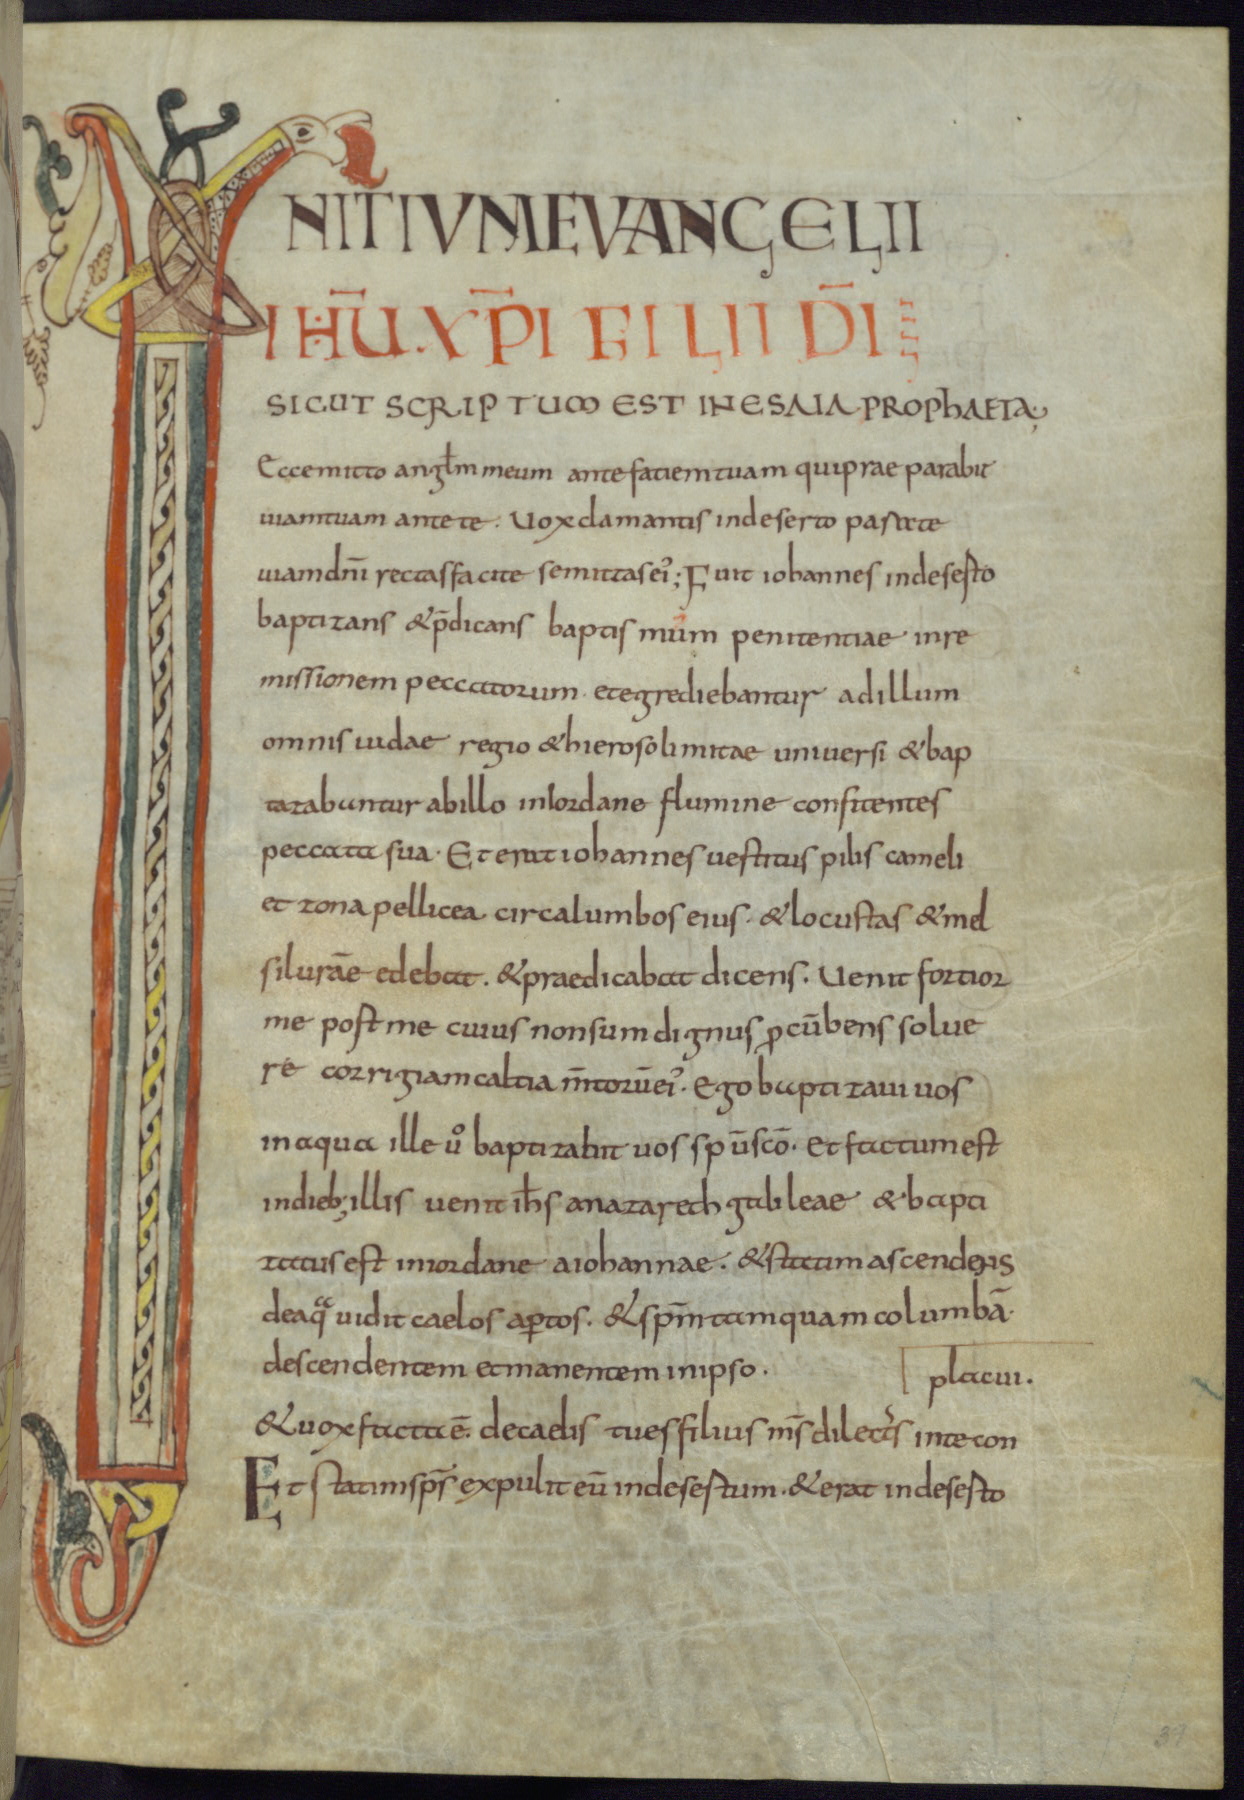 INITIUM EVANGELII
IHŪ XP̄I FILII DĪ
SICUT SCRIPTUM EST IN ESAIA PROPHAETA;
Ecce mitto anglm meum ante fatiem tuam qui prae parabit
uiam tuam ante te. Uox clamantis in deserto parate
uiam dn̄i rectas facite semitas ei'; Fuit iohannes in deserto
baptizans & p̄dicans baptismum penitentiae in re
missionem peccatorum. et egrediebantur ad illum
omnis iudae regio & hierosolimitae uniuersi & bap
tizabuntur ab illo in Iordane flumine confitentes
peccata sua. Et erat iohannes uestitus pilis cameli
et zona pellicea circa lumbos eius. & locustas & mel
silurāe edebat. & praedicabat dicens. Uenit fortior
me post me cuius non sum dignus pcūbens solue
re corrigiam caltia m̄torū ei'. Ego baptizaui uos
in aqua ille ů baptizabit uos spū scō. Et factum est
in dieb; illis uenit ih̄s a nazareth galileae & bapti
zatus est in iordane a iohannae. & statim ascendens
de aqᵃ uidit caelos aptos. & sp̄m tamquam columbā.
descendentem et manentem in ipso. placui.
& uox facta ē. de caelis tu es filius m̄s dilect's in te con
Et statim sp̄s expulit eū in desertum. & erat in deserto
37